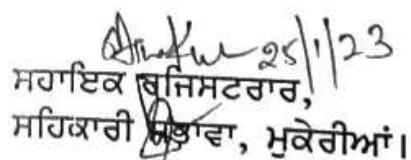 25/1/23
ਸਹਾਇਕ ਰਜਿਸਟਰਾਰ,
ਸਹਿਕਾਰੀ ਸਭਾਵਾ, ਮੁਕੇਰੀਆਂ।